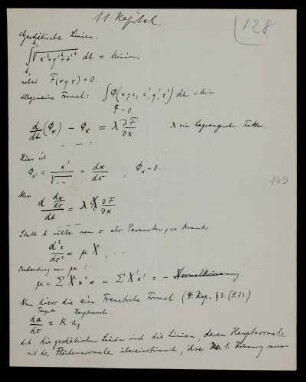 11. Kapitel.
128
Geodätische Linien.
∫ √x'² + y'² + z'² dt = Minimum
wobei F(xyz) = 0.
Allgemeine Formel: ∫ Φ(x y z, x' y' z') dt = Min
F = 0
d/dt (Φx') − Φx = λ ∂F/∂x λ ein Lagrangescher Faktor.
Hier ist
Φx' = x'/√ = dx/dσ , Φx = 0.
Also
d/dt dx/dσ = λ ∂F/∂x
149
d²x/dσ² = μ X, . .
Bedeutung von μ:
μ = Σ X x'' = − Σ X' x' = − Normalkrümmung
Nun hier die eine Frenetsche Formel (4. Kap. §3.
Tangente Hauptnormale.
dα/dσ = K α₁
d.h. die geodätischen Linien sind die Linien, deren Hauptnormale
mit der Flächennormale übereinstimmt, ihre 1. Krümmung